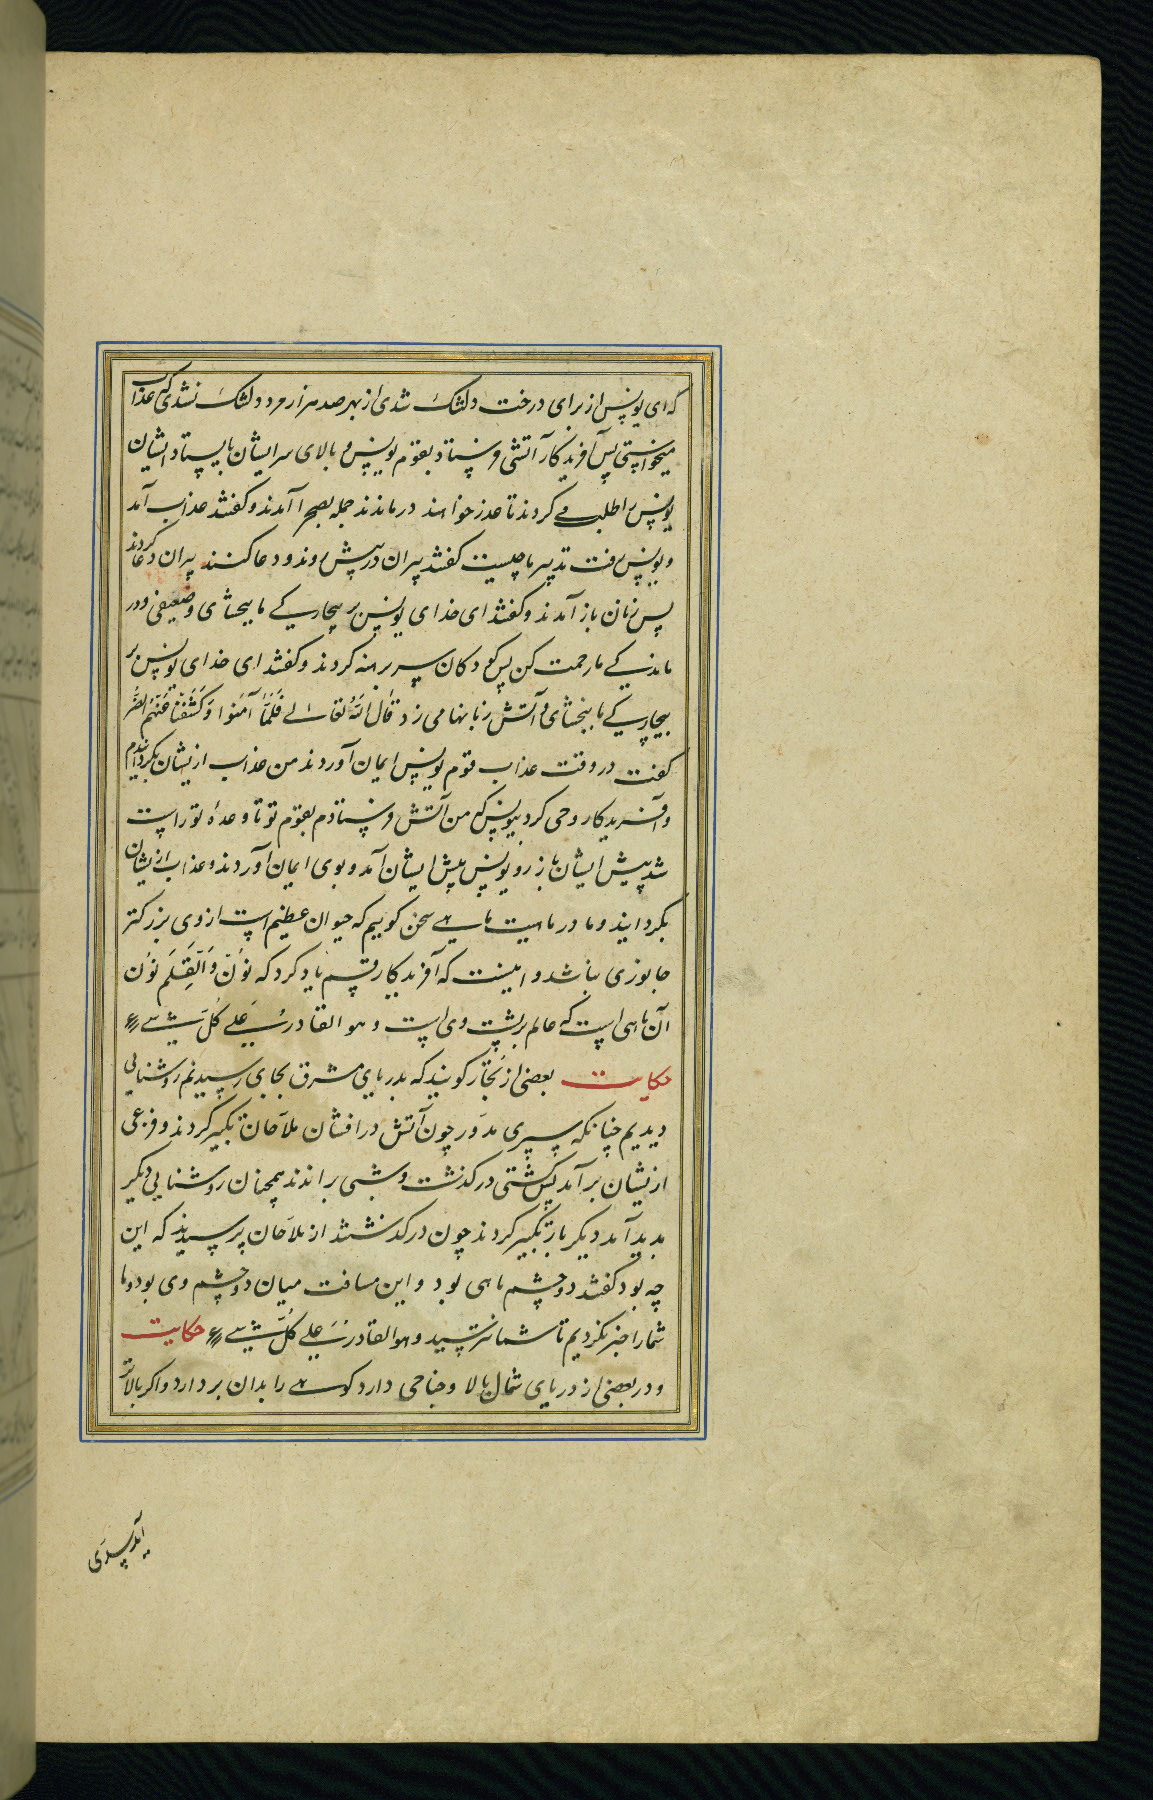 که ای یونس از برای درخت دلتنگ شدی از بهر صد هزار مرد دلتنگ نشدی که عذاب
میخواستی پس آفریدکار آتشی فرستاد بقوم یونس و بالای سر ایشان بایستاد ایشان
یونس را طلب می کردند تا عذر خواهند درماندند جمله بصحرا آمدند و کفتند عذاب آمد
و یونس رفت تدبیر ما چیست کفتند پیران در پیش روند و دعا کنند پیران دعا کردند
پس زنان باز آمدند و کفتند ای خدای یونس بر بیچارکی ما ببخشای و ضعیفی و در
ماندکی ما رحمت کن پس کودکان سر برهنه کردند و کفتند ای خدای یونس بر
بیچارکی ما ببخشای و آتش زبانها می زد قال الله تعالی فَلَمَّا آمَنُوا وَ کَشَفْنَا عَنْهُمُ الضُّرَّ
کفت در وقت عذاب قوم یونس ایمان آوردند من عذاب ازیشان بکردانیدم
و آفریدکار وحی کرد بیونس که من آتش فرستادم بقوم تو تا وعدهٔ تو راست
شد پیش ایشان باز رو یونس پیش ایشان آمد و بوی ایمان آوردند و عذاب ازیشان
بکردانید و ما در ماهیت ماهی سخن کوییم که حیوان عظیم است از وی بزرکتر
جانوری نباشد و اینست که آفریدکار قسم یاد کرد که نون وَالْقَلَم نون
آن ماهی است که عالم بر پشت وی است و هو القادر علی کل شیء
حکایت بعضی از تجّار کویند که بدریای مشرق بجایی رسیدیم روشنایی
دیدیم چنانکه سپری مدوّر چون آتش درافشان ملاحان تکبیر کردند و فزعی
ازیشان برآمد پس کشتی درکذشت و شبی براندند همچنان روشنایی دیکر
بدید آمد دیکر باز تکبیر کردند چون درکذشتند از ملاحان پرسیدند که این
چه بود کفتند دو چشم ماهی بود و این مسافت میان دو چشم وی بود و ما
شما را خبر نکردیم تا شما نترسید و هو القادر علی کل شیء حکایت
و در بعضی از دریای شمال بالا و جناحی دارد کوهی را بدان بردارد و اکر بالاتر
آید بسوی